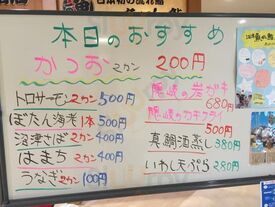 本日のおすすめ
かつお 2カン 200円
トロサーモン 2カン 500円
ぼたん海老 1本 500円
沼津さば 2カン 400円
はまち 2カン 400円
うなぎ 2カン 100円
隠岐の岩ガキ
680円
隠岐のカキフライ
500円
真鯛酒蒸し 380円
いわし天ぷら 280円